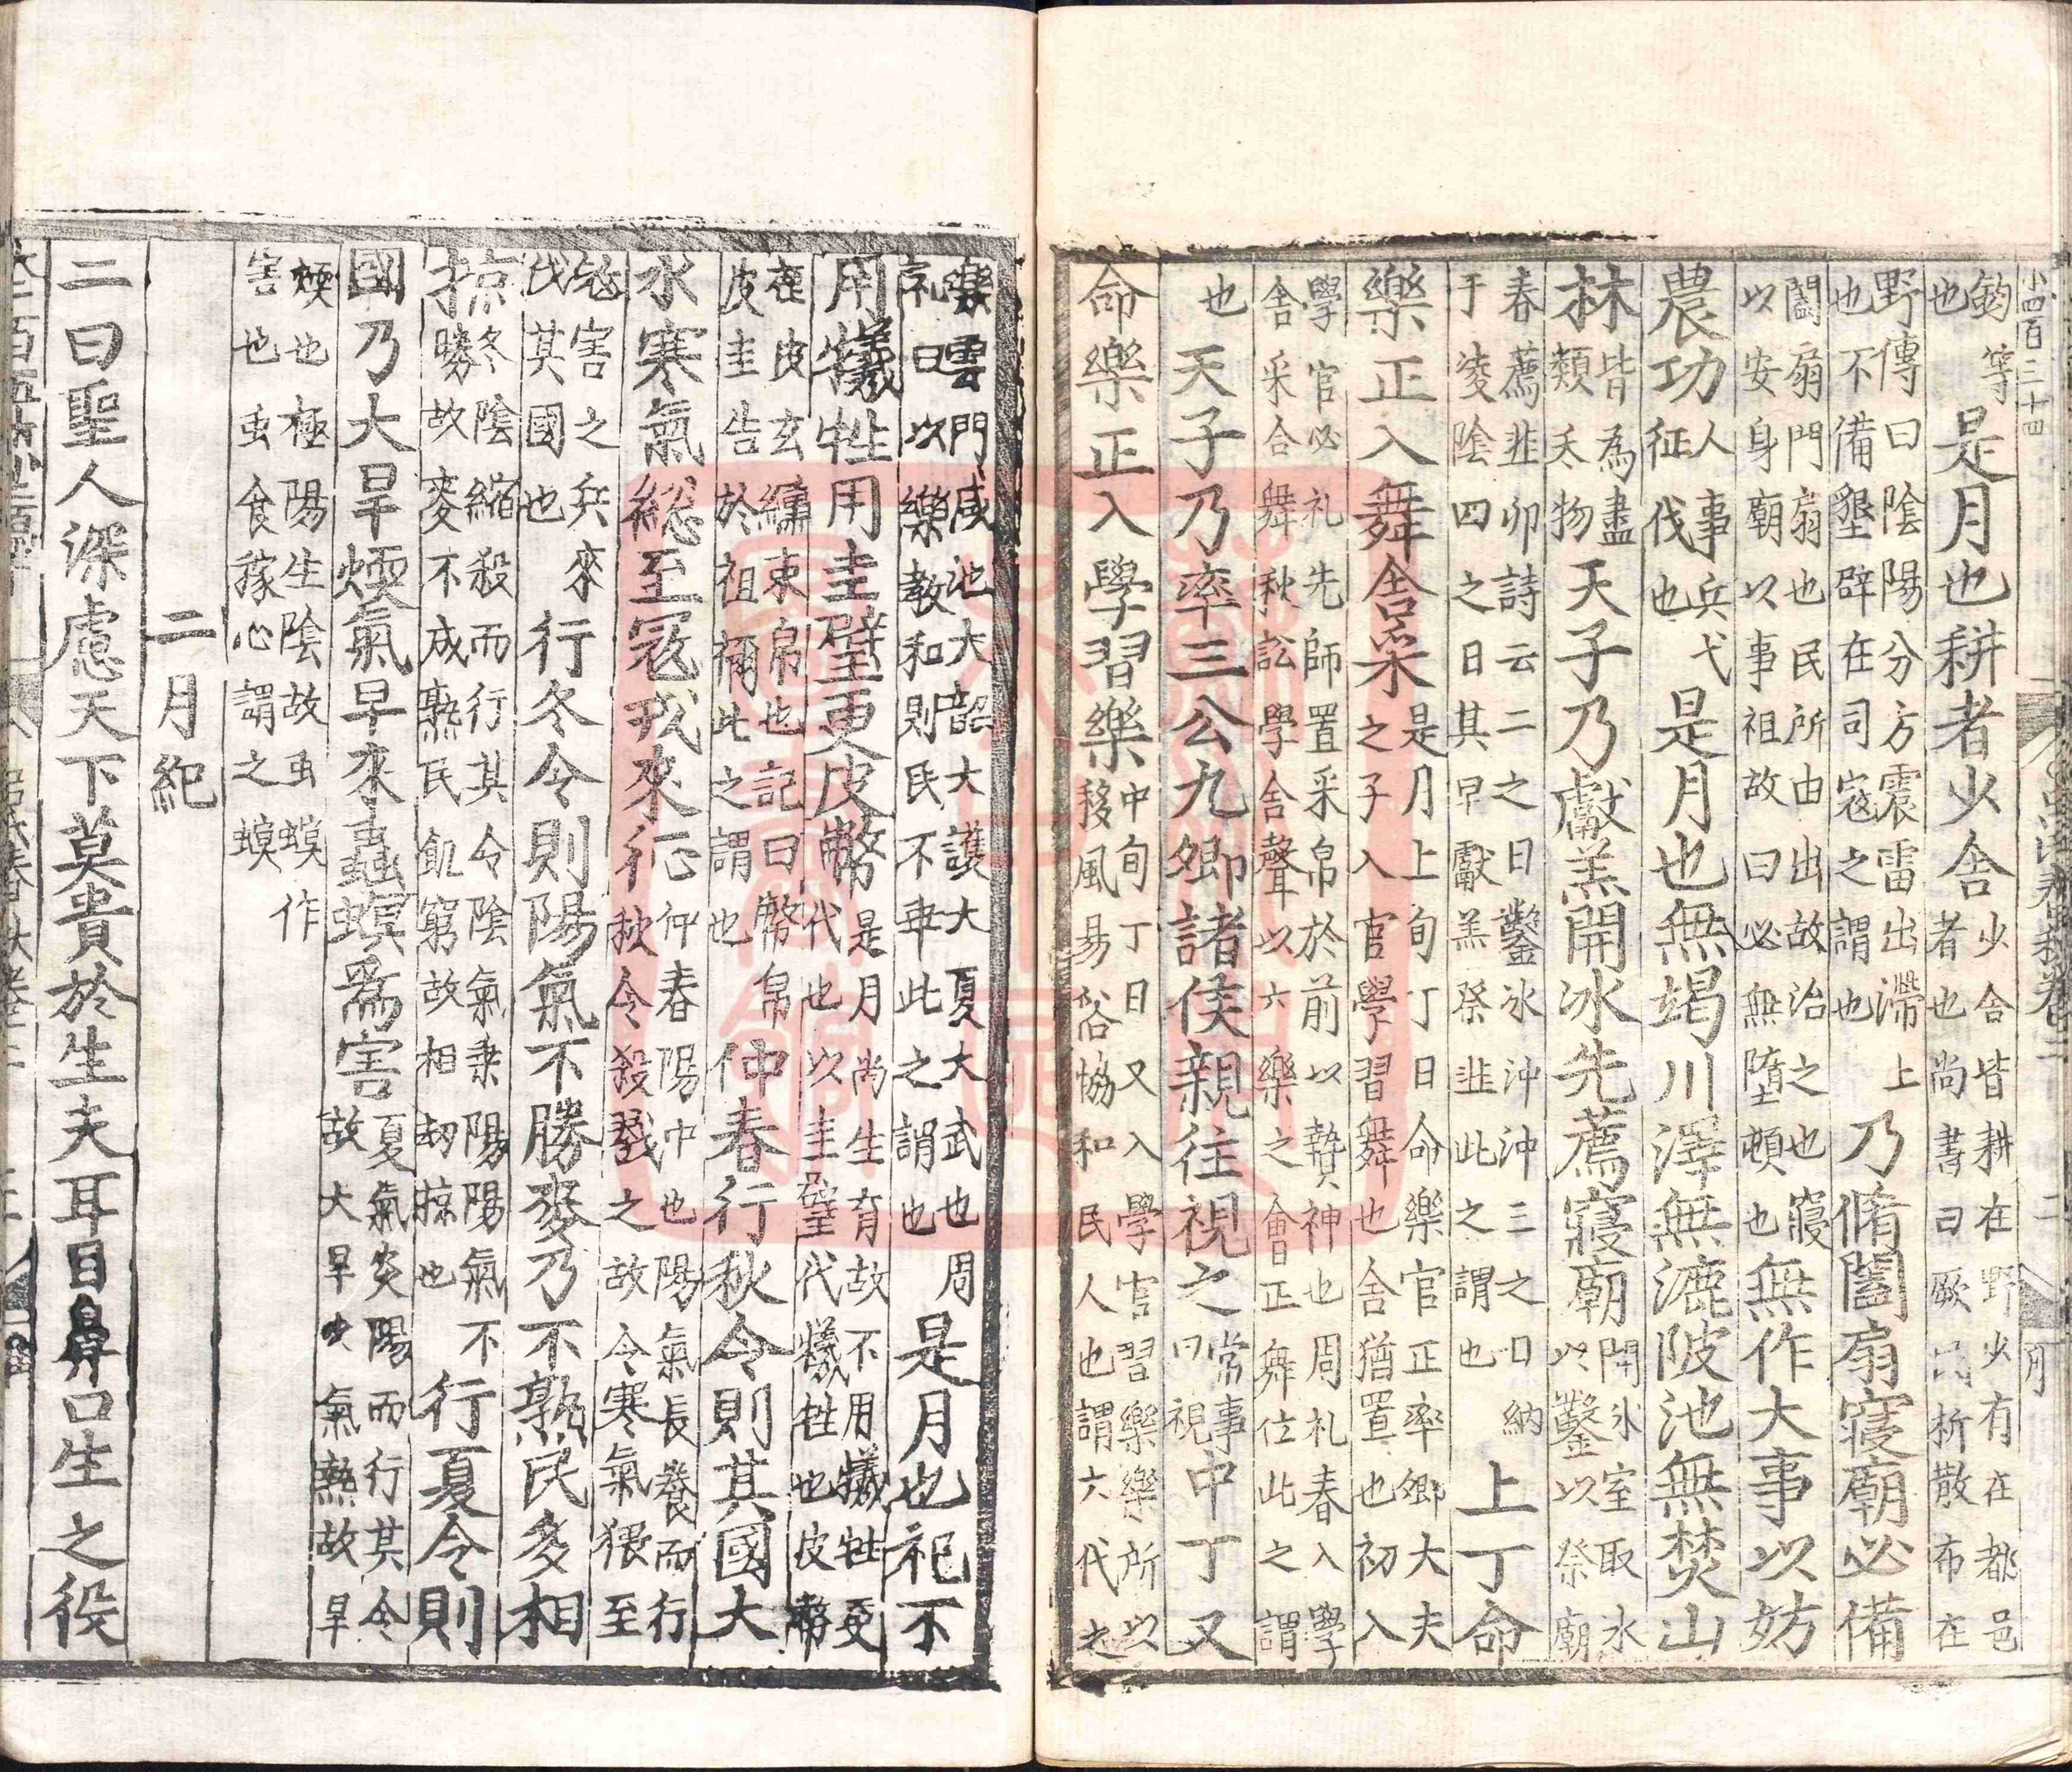 小四百三十四
鈞等也是月也耕者少舍少舍皆耕在野少有在都邑者也尚書曰厥民析散布在
野傳曰陰陽分方震雷出滯上也不備墾辟在司寇之謂也乃脩闔扇寢廟必備
闔扇門扇也民所由出故治之也寢以安身廟以事祖故曰必無墮頓也無作大事以妨
農功人事兵戈征伐也是月也無竭川澤無漉陂池無焚山
林皆為盡類夭物天子乃獻羔開冰先薦寢廟開氷室取氷以鑿以祭廟
春薦韭卯詩云二之日鑿冰沖沖三之日納于淩陰四之日其早獻羔祭韭此之謂也上丁命
樂正入舞舍采是月上旬丁日命樂官正率卿大夫之子入官學習舞也舍猶置也初入
學官必礼先師置采帛於前以贄神也周礼春入學舍采合舞秋訟學舍聲以六樂之會正舞位此之謂
也天子乃率三公九卿諸侯親往視之常事曰視中丁又
命樂正入學習樂中旬丁日又入學官習樂樂所以移風易俗恊和民人也謂六代之
樂雲門咸池大韶大護大夏大武也周礼曰以樂教和則民不乖此之謂也是月也祀不
用犧牲用圭璧更皮幣是月尚生育故不用犧牲更代也以圭璧代犧牲也皮幣
鹿皮玄纁束帛也記曰幣帛皮圭告於祖禰此之謂也仲春行秋令則其國大
水寒氣総至寇戎來征仲春陽中也陽氣長養而行秋令殺戮之故令寒氣猥至
寇害之兵來伐其國也行冬令則陽氣不勝麥乃不熟民多相
掠冬陰縮殺而行其令陰氣乘陽陽氣不勝故麥不成熟民飢窮故相劫掠也行夏令則
國乃大旱煖氣早來蟲螟為害夏氣炎陽而行其令故大旱火氣熱故旱
煖也極陽生陰故虫螟作害也虫食稼心謂之螟
二月紀
二曰聖人深慮天下莫貴於生夫耳目鼻口生之役